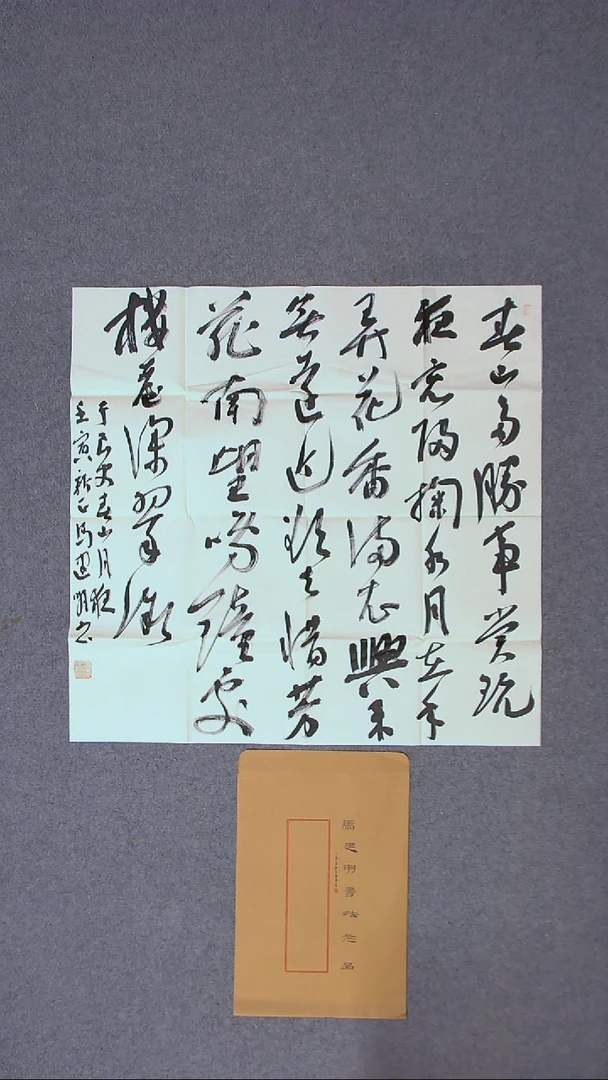 春山多勝事賞玩
夜忘歸掬水月在手
弄花香滿衣興來
無遠近欲去惜芳
菲南望鳴鐘處
樓臺深翠微
于良史春山月夜
壬寅 馬 明書
馬 明書法作品